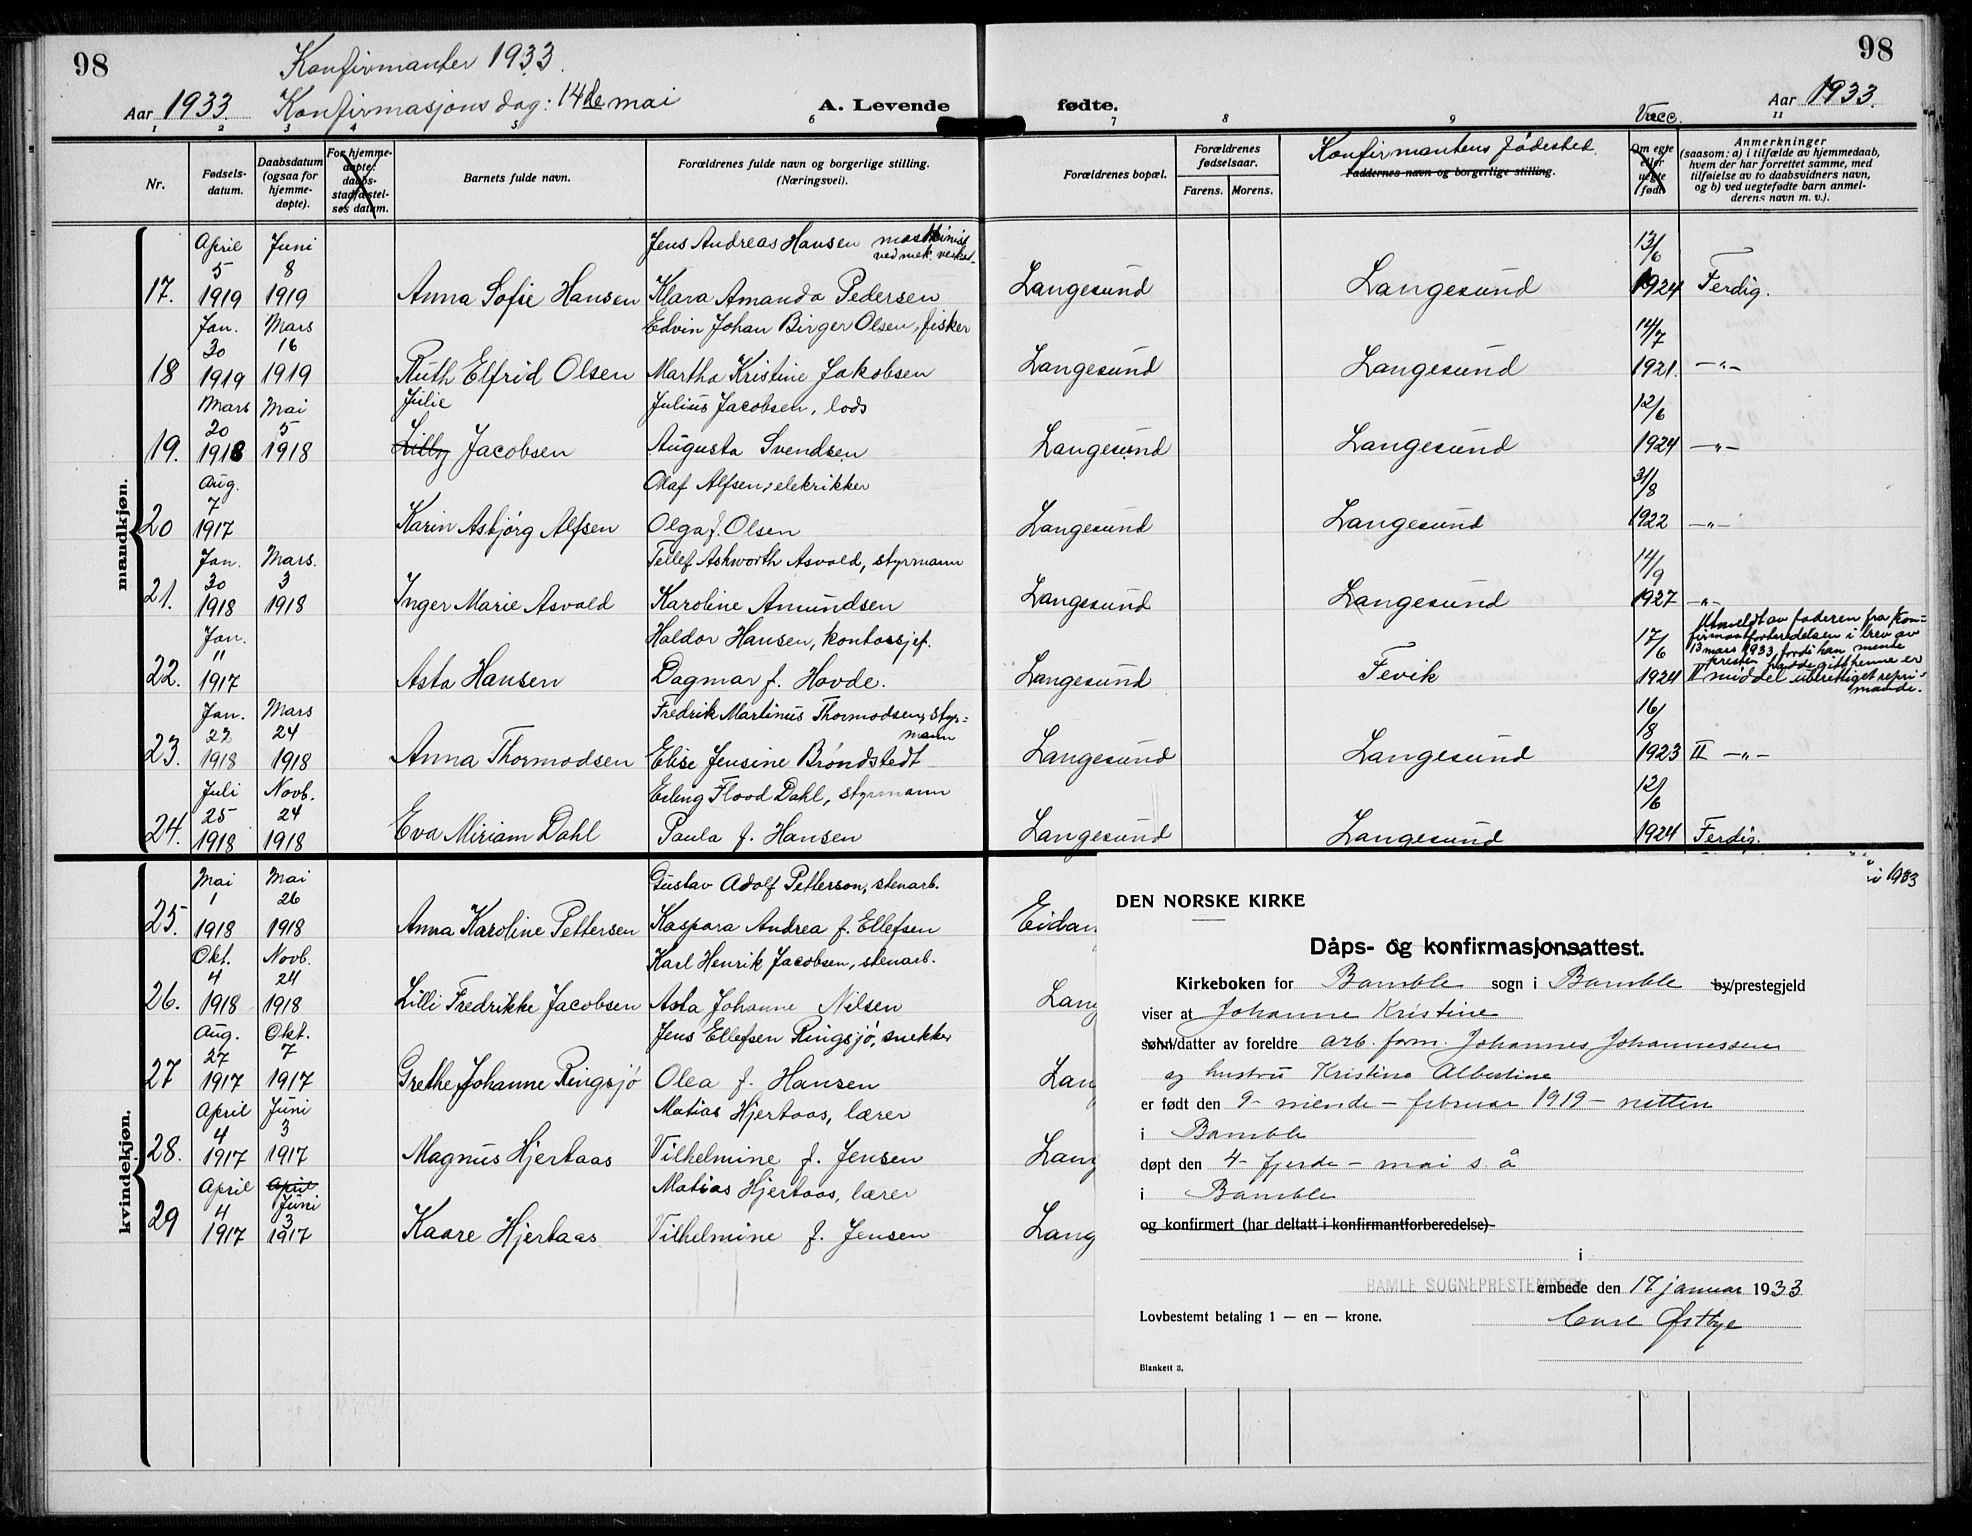 98
Konfirmanter 1933.
98
Aar 1933. Konfirmasjonsdag: 14de mai
A. Levende fødte.
Aar 1933.
1 2 3 4 5 6 7 8 9 Vacc. 11
Nr.
Fødsels-
datum.
Daabsdatum
(ogsaa for
hjemme-
døpte).
For hjemme-
døpte:
daabs-
stadfæstel-
ses datum.
Barnets fulde navn.
Forældrenes fulde navn og borgerlige stilling.
(Næringsvei).
Forældrenes bopæl.
Forældrenes
fødselsaar.
Farens. Morens.
Konfirmantens fødested.
Faddernes navn og borgerlige stilling.
Om egte
eller
uegte
født.
Anmerkninger
(saasom: a) i tilfælde av hjemmedaab,
hvem der har forrettet samme, med
tilføielse av to daabsvidners navn,
og b) ved uegtefødte barn anmel-
derens navn m. v.).
mandkjøn.
April Juni Jens Andreas Hansen maskinist 13/6
5 8 ved mek. verkst.
17. 1919 1919 Anna Sofie Hansen Klara Amanda Pedersen Langesund Langesund 1924 Ferdig.
Jan. Mars Edvin Johan Birger Olsen, fisker 14/7
30 16
18 1919 1919 Ruth Elfrid Olsen Martha Kristine Jakobsen Langesund Langesund 1921. —"—
Mars Mai Julie Julius Jacobsen, lods 12/6
20 5
19. 1918 1918 Lilly Jacobsen Augusta Svendsen Langesund Langesund 1924 —"—
Aug. Olaf Alfsen, elekrikker 31/8
7
20 1917 Karin Asbjørg Alfsen Olga f. Olsen Langesund Langesund 1922 —"—
Jan. Mars. Tellef Ashworth Asvald, styrmann 14/9
30 3
21. 1918 1918 Inger Marie Asvald Karoline Amundsen Langesund Langesund 1927 —"—
Jan. Haldor Hansen, kontorsjef. 17/6 Utmeldt av faderen fra kon=
firmantforberedelsen i brev av
11 13 mars 1933, fordi han mente
presten hadde gitt henne er
22. 1917 Asta Hansen Dagmar f. Hovde. Langesund Fevik 1924 II middel uberettiget repri-
mande.
Jan. Mars Fredrik Martinus Thormodsen, styr= 16/8
22 24 mann
23. 1918 1918 Anna Thormodsen Elise Jensine Brøndstedt Langesund Langesund 1923 II —"—
Juli Novb. Erling Flood Dahl, styrmann 12/6
25 24
24. 1918 1918 Eva Miriam Dahl Paula f. Hansen Langesund Langesund 1924 Ferdig.
kvindekjøn.
Mai Mai Gustav Adolf Petterson, stenarb.
1 26
25. 1918 1918 Anna Karoline Pettersen Kaspara Andrea f. Ellefsen Eidan
Okt. Novb. Karl Henrik Jacobsen, stenarb.
4 24
26. 1918 1918 Lilli Fredrikke Jacobsen Asta Johanne Nilsen Lang
Aug. Okt. Jens Ellefsen Ringsjø, snekker
27 7
27 1917 1917 Grethe Johanne Ringsjø Olea f. Hansen Lang
April Juni Matias Hjertaas, lærer
4 3
28. 1917 1917 Magnus Hjertaas Vilhelmine f. Jensen Lang
April April Matias Hjertaas, lærer
4 Juni 3
29 1917 1917 Kaare Hjertaas Vilhelmine f. Jensen Lang
i 1933
DEN NORSKE KIRKE
Dåps- og konfirmasjonsattest.
Kirkeboken for Bamble sogn i Bamble by/prestegjeld
viser at Johanne Kristine
sønn/datter av foreldre arb. form. Johannes Johannessen
og hustru Kristine Albertine
er født den 9- niende - februar 1919 - nitten
i Bamble
døpt den 4- fjerde - mai s. å
i Bamble
og konfirmert (har deltatt i konfirmantforberedelse)
i
BAMLE SOGNEPRESTEMBEDE embede den 17 januar 1933
Lovbestemt betaling 1 — en — krone. Carl Østbye
Blankett 8.